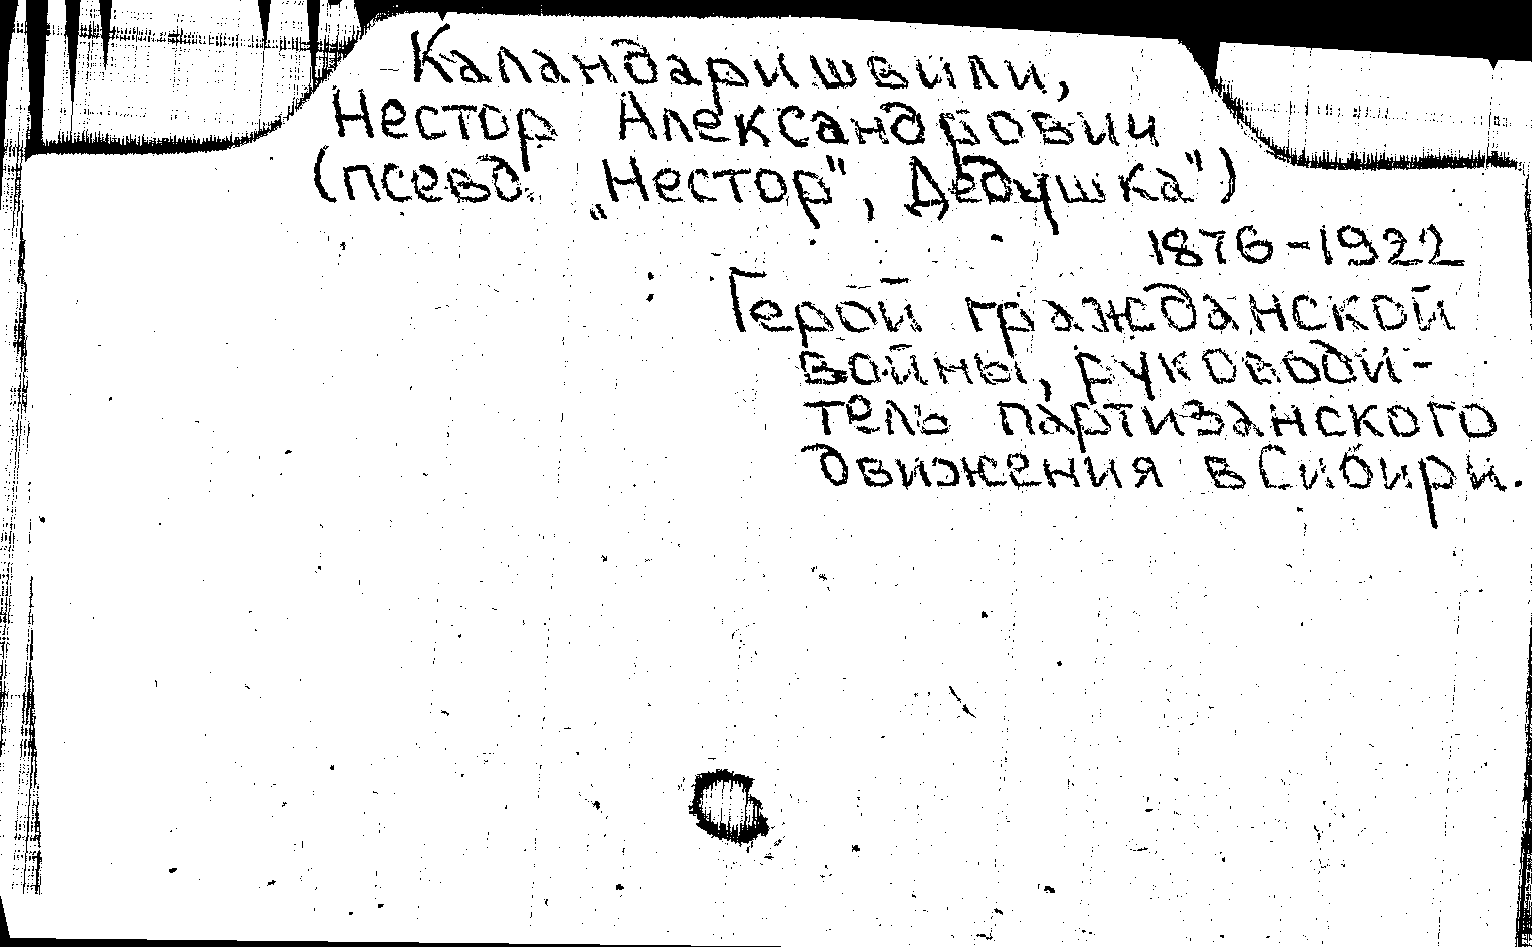 Каландаришвили,
Нестор Александрович
(псевд. „Нестор", Дедушка")
1876-1922
Герой гражданской
войны, руководи-
тель партизанского
движения в Сибири.